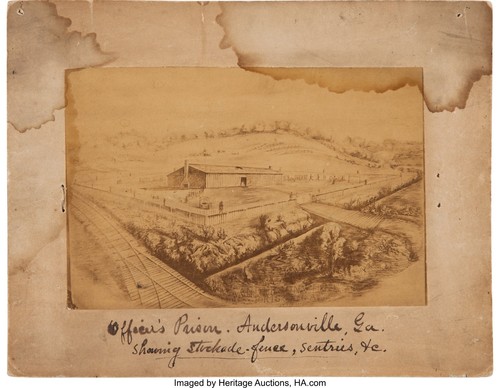 Officer's Prison. Andersonville, Ga.
Showing Stockade-fence, sentries, &c.
Imaged by Heritage Auctions, HA.com